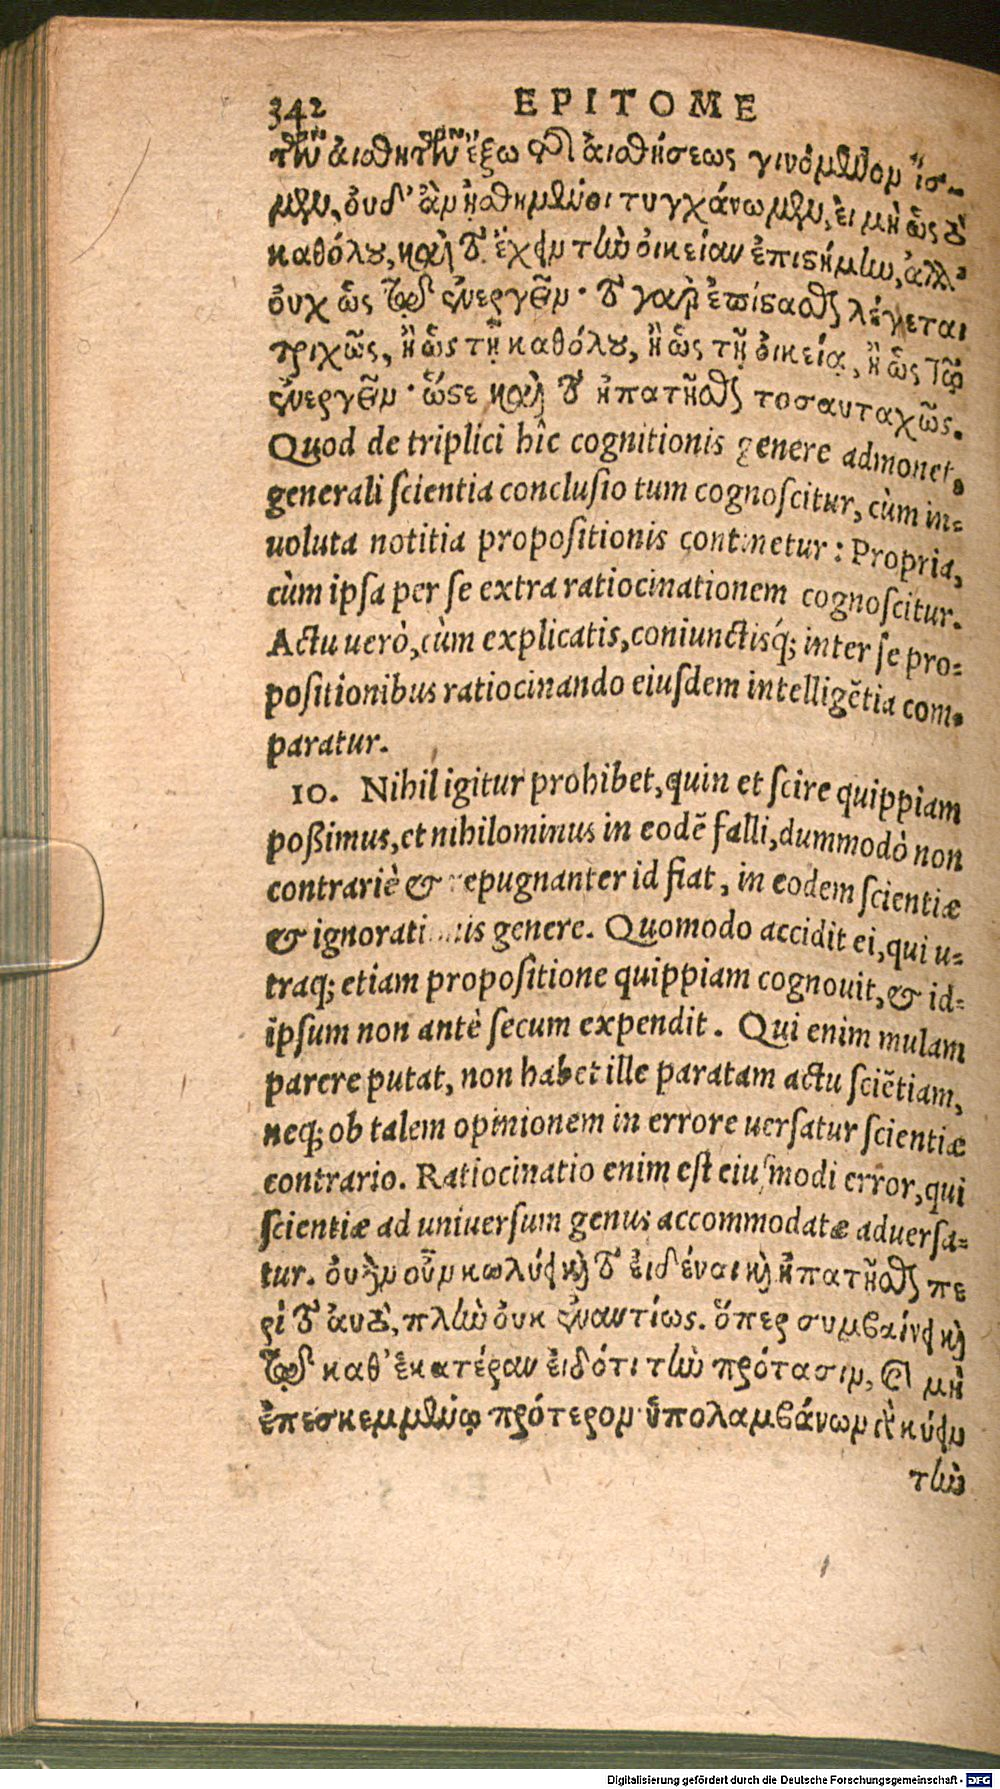 342 EPITOME
τῶν αἰσθητῶν ἔξω τῆς αἰσθήσεως γινόμενον ἴσ-
μεν, οὐδ' ἂν ᾐσθημένοι τυγχάνωμεν, εἰ μὴ ὡς τῷ
καθόλου, καὶ τῷ ἔχειν τὴν οἰκείαν ἐπιστήμην, ἀλλ'
οὐχ ὡς τῷ ἐνεργεῖν· τὸ γὰρ ἐπίστασθαι λέγεται
τριχῶς, ἢ ὡς τῇ καθόλου, ἢ ὡς τῇ οἰκείᾳ, ἢ ὡς τῷ
ἐνεργεῖν· ὥστε καὶ τὸ ἠπατῆσθαι τοσαυταχῶς.
Quod de triplici hîc cognitionis genere admonet,
generali ſcientia concluſio tum cognoſcitur, cùm in-
uoluta notitia propoſitionis continetur: Propria,
cùm ipſa per ſe extra ratiocinationem cognoſcitur.
Actu uerò, cùm explicatis, coniunctisq́; inter ſe pro-
poſitionibus ratiocinando eiuſdem intelligẽtia com-
paratur.
10. Nihil igitur prohibet, quin et ſcire quippiam
poßimus, et nihilominus in eodẽ falli, dummodò non
contrariè & repugnanter id fiat, in eodem ſcientiæ
& ignorationis genere. Quomodo accidit ei, qui u-
traq; etiam propoſitione quippiam cognouit, & id-
ipſum non antè ſecum expendit. Qui enim mulam
parere putat, non habet ille paratam actu ſciẽtiam,
neq; ob talem opinionem in errore uerſatur ſcientiæ
contrario. Ratiocinatio enim eſt eiuſmodi error, qui
ſcientiæ ad uniuerſum genus accommodatæ aduerſa-
tur. οὐδὲν οὖν κωλύει καὶ τὸ εἰδέναι καὶ ἠπατῆσθαι πε
ρὶ τὸ αὐτό, πλὴν οὐκ ἐναντίως. ὅπερ συμβαίνει καὶ
τῷ καθ' ἑκατέραν εἰδότι τὴν πρότασιν, καὶ μὴ
ἐπεσκεμμένῳ πρότερον· ὑπολαμβάνων γὰρ κύειν
τὴν
Digitalisierung gefördert durch die Deutsche Forschungsgemeinschaft - DFG